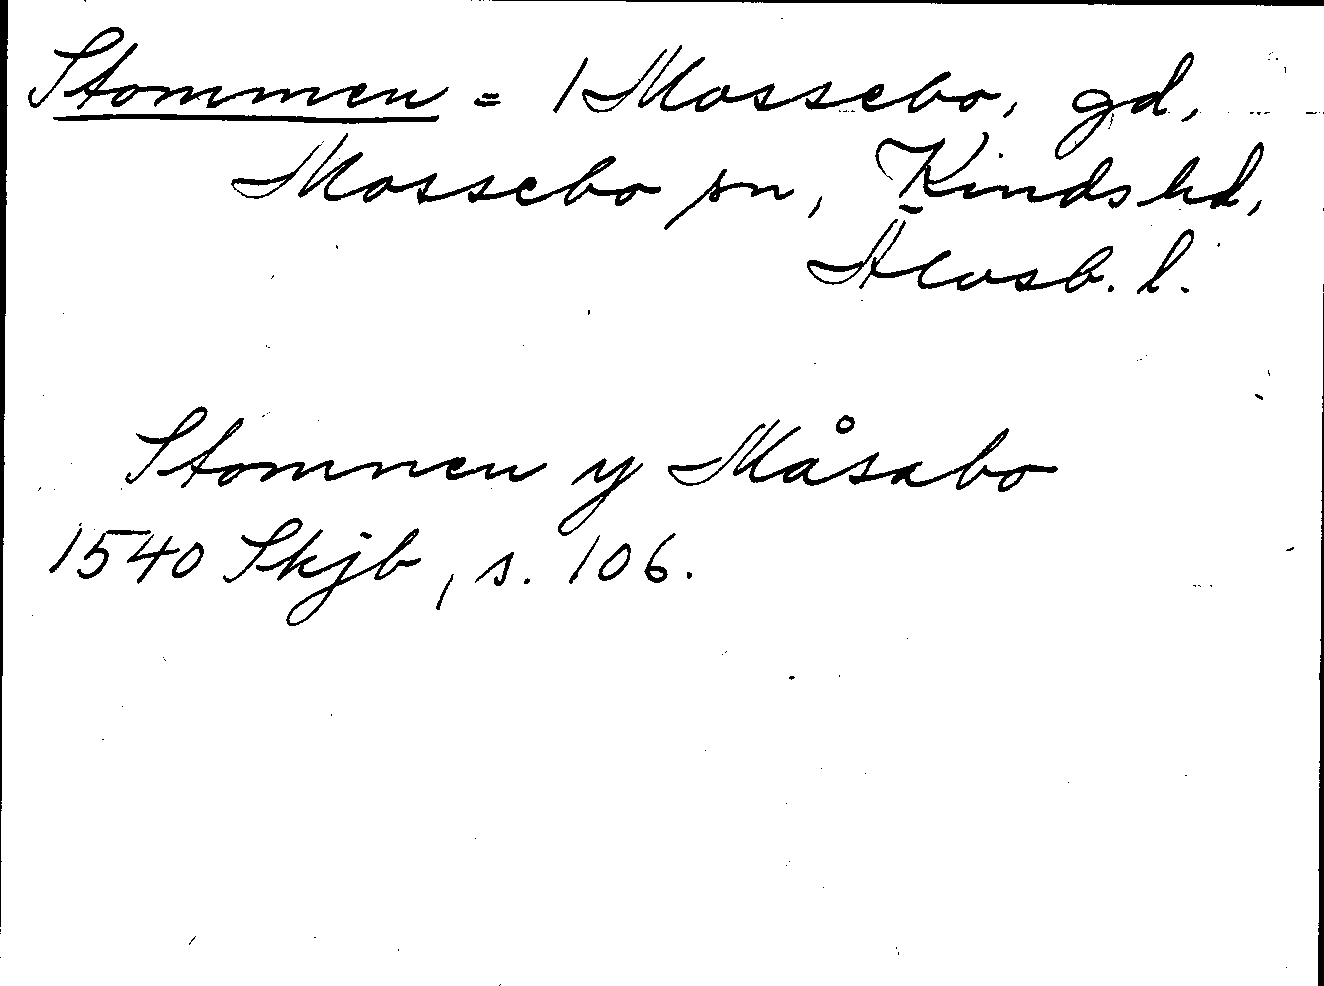 Stommen = 1 Mossebo, gd,
Mossebo sn, Kinds hd,
Älvsb. l.
Stomnen y Måsabo
1540 Skjb, s. 106.